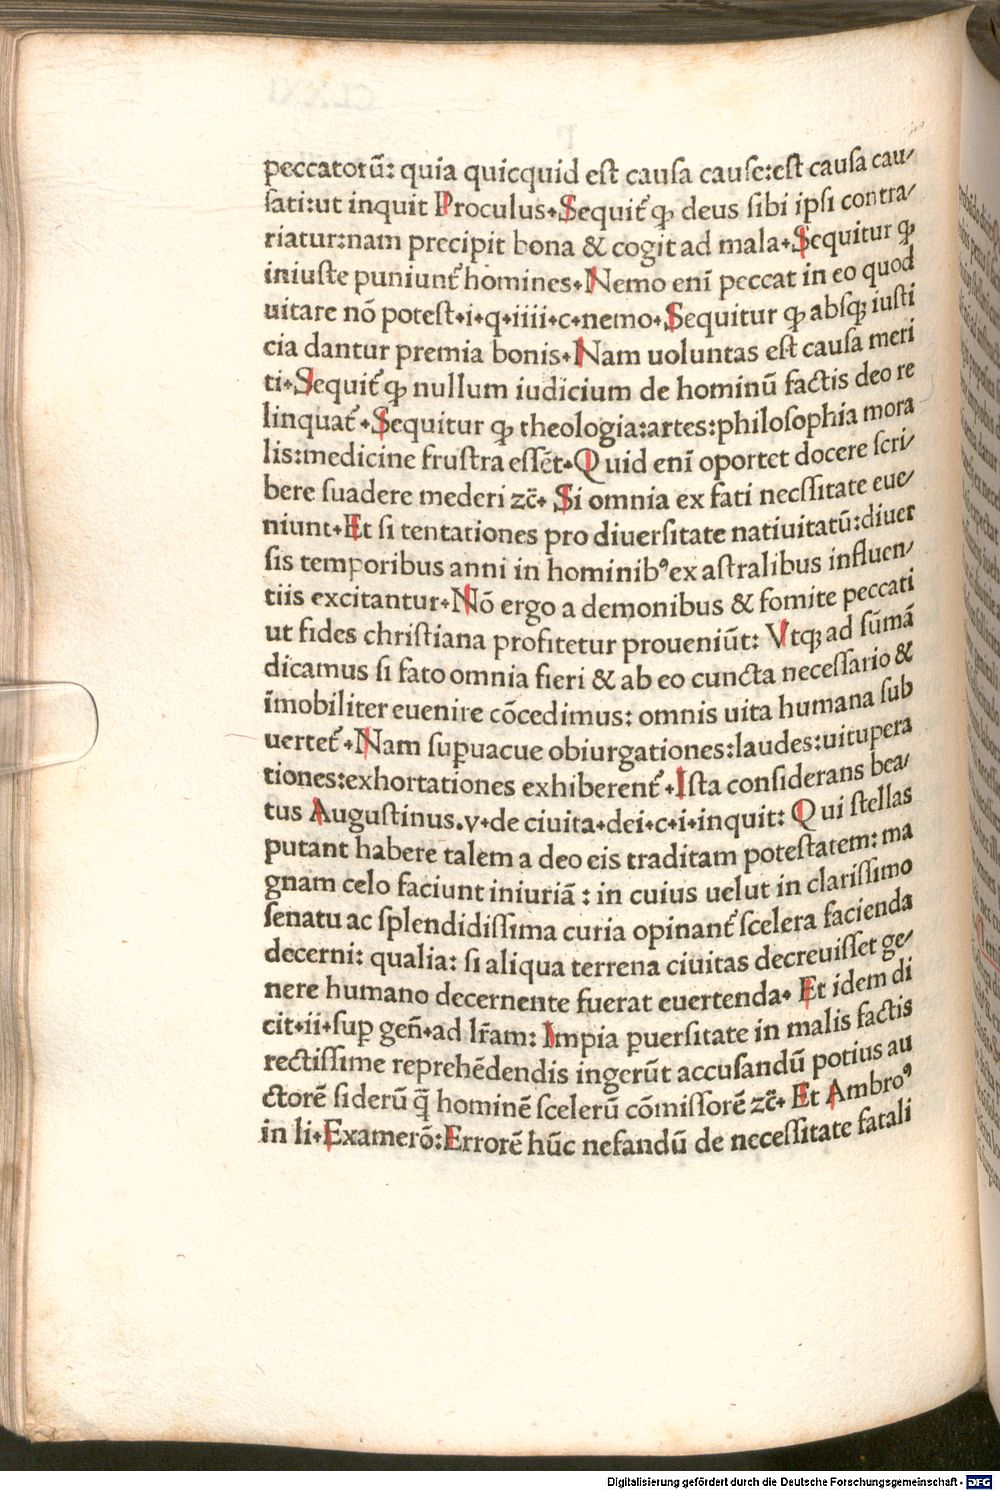 peccatorū: quia quicquid est causa cause:est causa cau⸗
sati:ut inquit Proculus.Sequit᷑ ꝙ deus sibi ipsi contra⸗
riatur:nam precipit bona & cogit ad mala.Sequitur ꝙ
iniuste puniunt᷑ homines.Nemo enī peccat in eo quod
uitare nō potest.i.q.iiii.c.nemo.Sequitur ꝙ absqꝫ iusti
cia dantur premia bonis.Nam uoluntas est causa meri
ti.Sequit᷑ ꝙ nullum iudicium de hominū factis deo re
linquat᷑.Sequitur ꝙ theologia:artes:philosophia mora
lis:medicine frustra essēt.Quid enī oportet docere scri⸗
bere suadere mederi zc̄. Si omnia ex fati necssitate eue⸗
niunt.Et si tentationes pro diuersitate natiuitatū:diuer
sis temporibus anni in hominibꝰ ex astralibus influen⸗
tiis excitantur.Nō ergo a demonibus & fomite peccati
ut fides christiana profitetur proueniūt: Vtqꝫ ad sūmā
dicamus si fato omnia fieri & ab eo cuncta necessario &
īmobiliter euenire cōcedimus: omnis uita humana sub
uertet᷑.Nam suꝑuacue obiurgationes:laudes:uitupera
tiones:exhortationes exhiberent᷑.Ista considerans bea⸗
tus Augustinus.v.de ciuita.dei.c.i.inquit: Qui stellas
putant habere talem a deo eis traditam potestatem: ma
gnam celo faciunt iniuriā : in cuius uelut in clarissimo
senatu ac splendidissima curia opinant᷑ scelera facienda
decerni: qualia: si aliqua terrena ciuitas decreuisset ge⸗
nere humano decernente fuerat euertenda. Et idem di
cit.ii.suꝑ geñ.ad lr̄am: Impia ꝑuersitate in malis factis
rectissime reprehēdendis ingerūt accusandū potius au
ctorē siderū q̄̃ hominē scelerū cōmissorē zc̄. Et Ambroꝰ
in li.Examerō:Errorē hūc nefandū de necessitate fatali
Digitalisierung gefördert durch die Deutsche Forschungsgemeinschaft - DFG